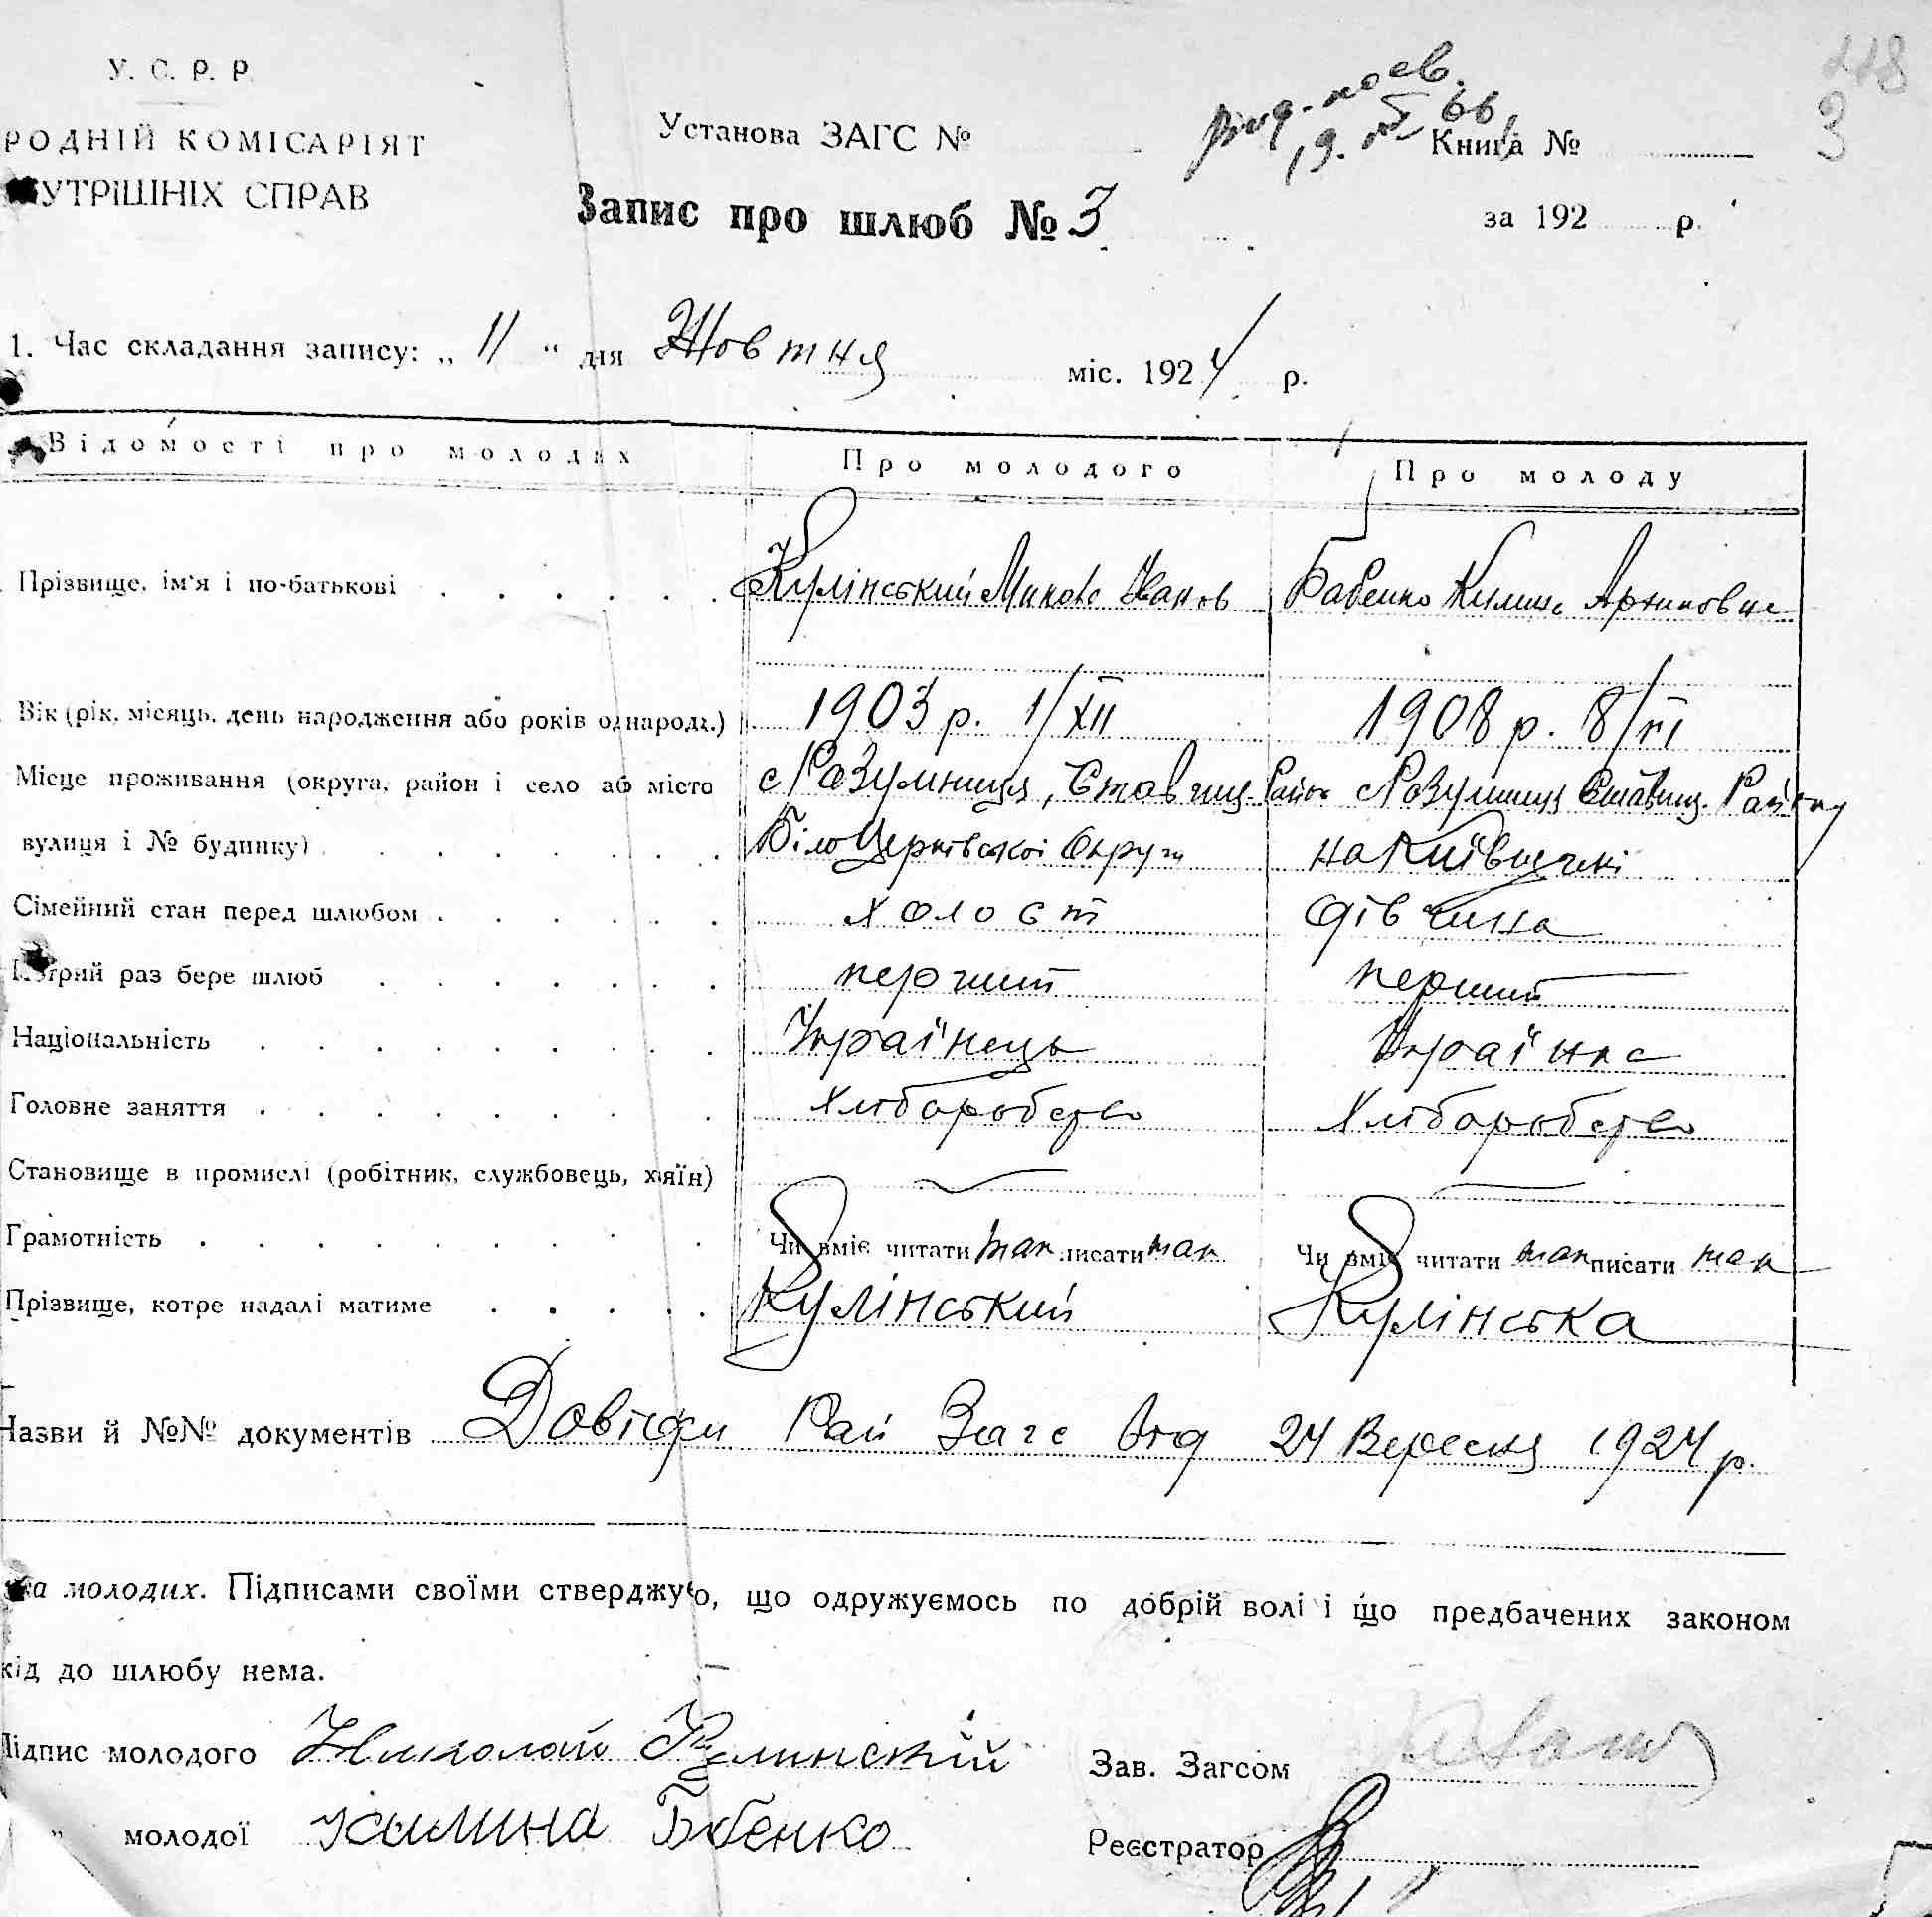 У. С. Р. Р.
118
3
РОДНІЙ КОМІСАРІЯТ
УТРІШНІХ СПРАВ
Установа ЗАГС №
Книга №
Запис про шлюб № 3
за 192 р.
1. Час складання запису: „ 11 “ дня Жовтня міс. 1924 р.
Відомості про молодих Про молодого Про молоду
Прізвище, ім'я і по-батькові Кулінський Микола Іванов Бабенко Килина
Вік (рік, місяць, день народження або років однарод.) 1903 р. 1/XII 1908 р. 8/VI
Місце проживання (округа, район і село або місто с Розумниця, Ставищ. Район с Розумниця Ставищ. Району
вулиця і № будинку) Білоцерківської Округи на Київщині
Сімейний стан перед шлюбом холост дівчина
Котрий раз бере шлюб перший перший
Національність Українець Українка
Головне заняття Хліборобство Хліборобство
Становище в промислі (робітник, службовець, хазяїн)
Грамотність Чи вміє читати так писати так Чи вміє читати так писати так
Прізвище, котре надалі матиме Кулінський Кулінська
Назви й №№ документів Довідки Рай Загс від 24 Вересня 1924 р.
ка молодих. Підписами своїми стверджую, що одружуємось по добрій волі і що предбачених законом
кід до шлюбу нема.
Підпис молодого Николай Кулинский Зав. Загсом
„ молодої Килина Бабенко Реєстратор